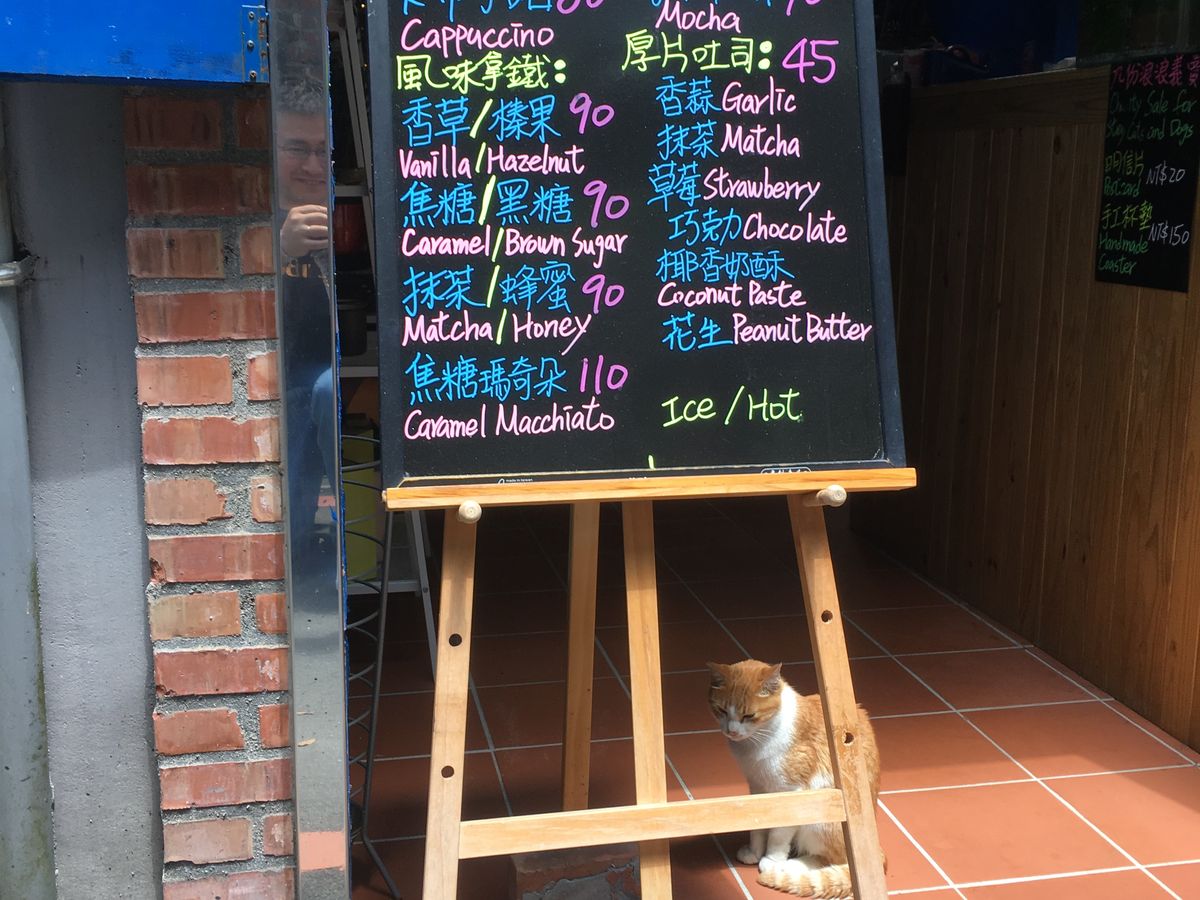 Cappuccino
風味拿鐵:
香草/榛果 90
Vanilla/Hazelnut
焦糖/黑糖 90
Caramel/Brown Sugar
抹茶/蜂蜜 90
Matcha/Honey
焦糖瑪奇朵 110
Caramel Macchiato
Mocha
厚片吐司: 45
香蒜 Garlic
抹茶 Matcha
草莓 Strawberry
巧克力 Chocolate
椰香奶酥
Coconut Paste
花生 Peanut Butter
Ice/Hot
made in taiwan
Charity Sale for
Stray Cats and Dogs
明信片
Postcard NT$20
手工杯墊
Handmade NT$150
Coaster